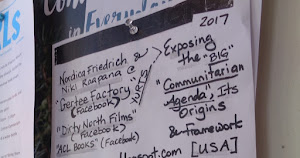 in Ever
2017
Nordica Friedrich &
Niki Raapana
"Gertee Factory"
(Facebook)
"Dirty North Films"
(Facebook)
"ACL BOOKS" (Facebook)
Exposing
the "BIG"
"Communitarian
Agenda", Its
Origins
& Framework
spot.com [USA]